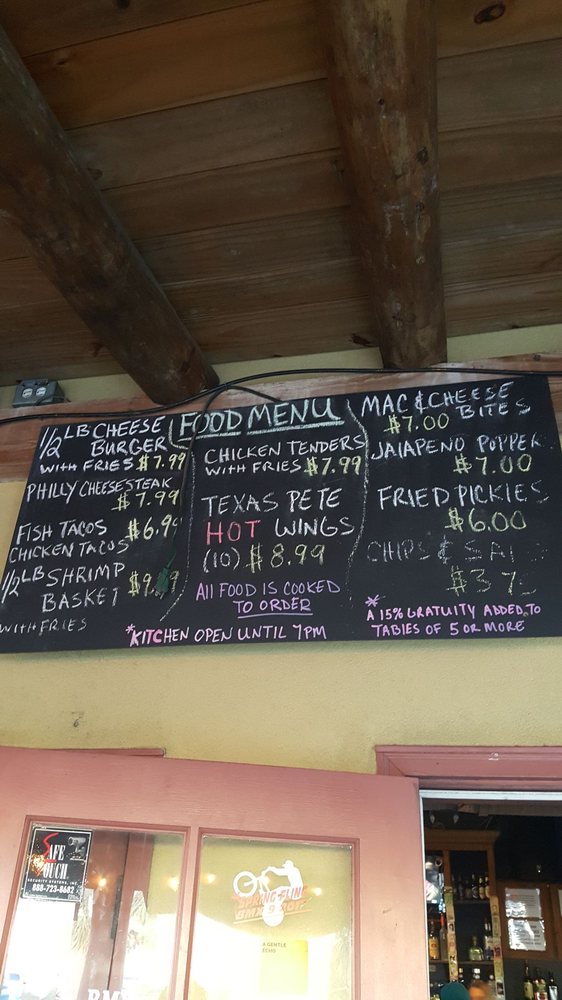 FOOD MENU
1/2 LB CHEESE
BURGER
WITH FRIES $7.99
PHILLY CHEESESTEAK
$7.99
FISH TACOS $6.99
CHICKEN TACOS
1/2 LB SHRIMP
BASKET
WITH FRIES
CHICKEN TENDERS
WITH FRIES $7.99
TEXAS PETE
HOT WINGS
(10) $8.99
All FOOD IS COOKED
TO ORDER
*KITCHEN OPEN UNTIL 7PM
MAC & CHEESE
$7.00 BITES
JALAPENO POPPER
$7.00
FRIED PICKIES
$6.00
CHIPS &
$3.75
*
A 15% GRATUITY ADDED TO
TABIES OF 5 OR MORE
SAFE
TOUCH
SECURITY SYSTEMS, INC.
888-723-8682
SPRING FLING
BMX
A GENTLE
ECHO